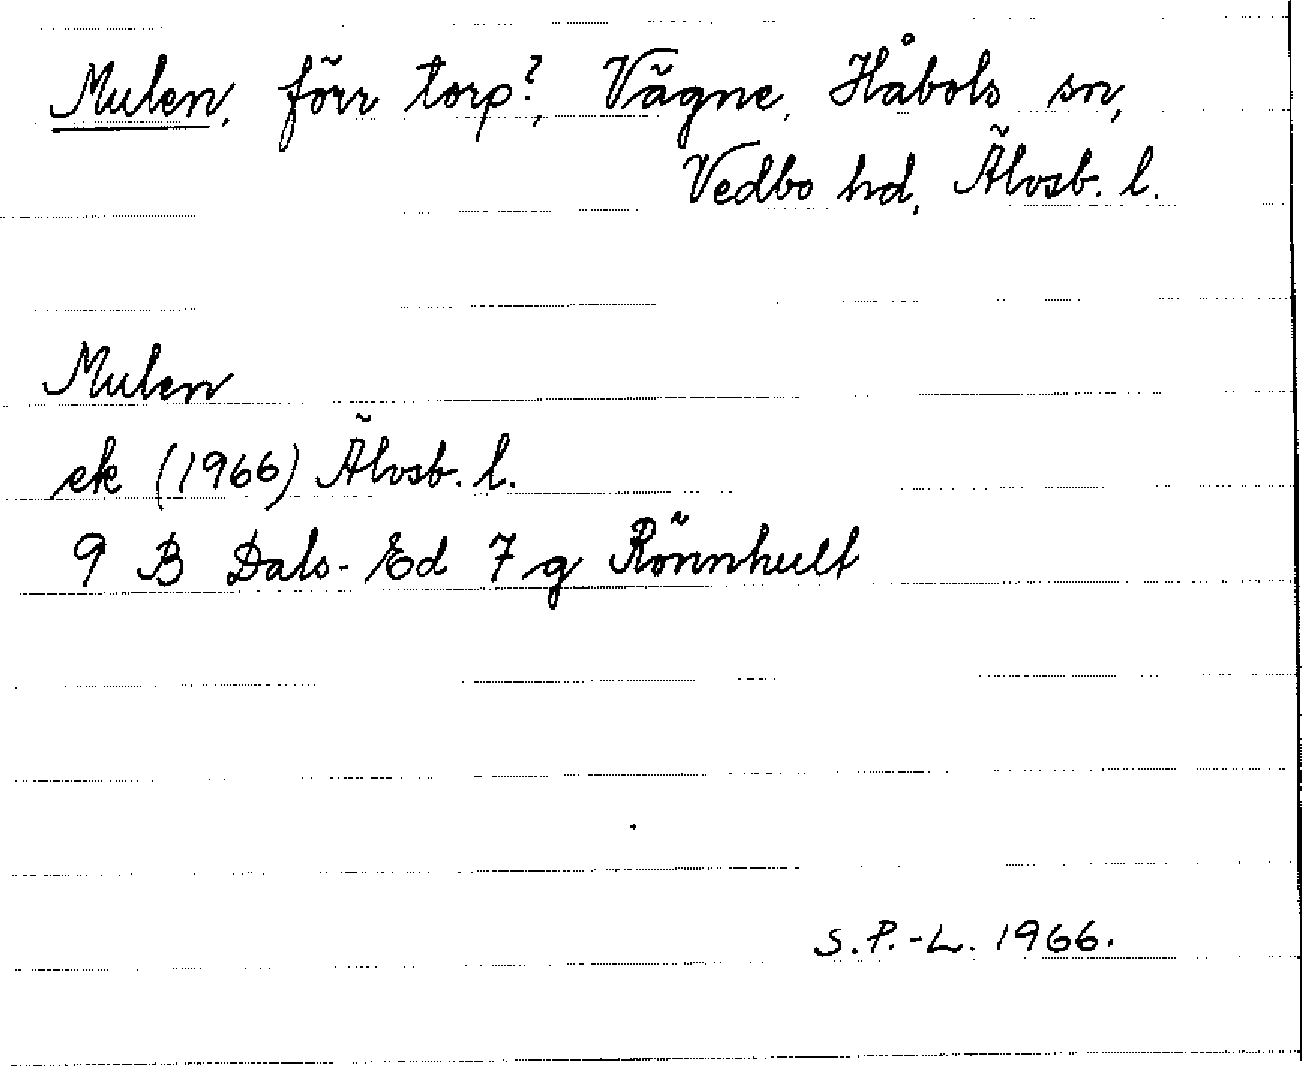 Mulen, förr torp?, Vägne, Håbols sn,
Vedbo hd, Älvsb. l.
Mulen
ek (1966) Älvsb. l.
9 B Dals-Ed 7 g Rönnhult
S.P.-L. 1966.